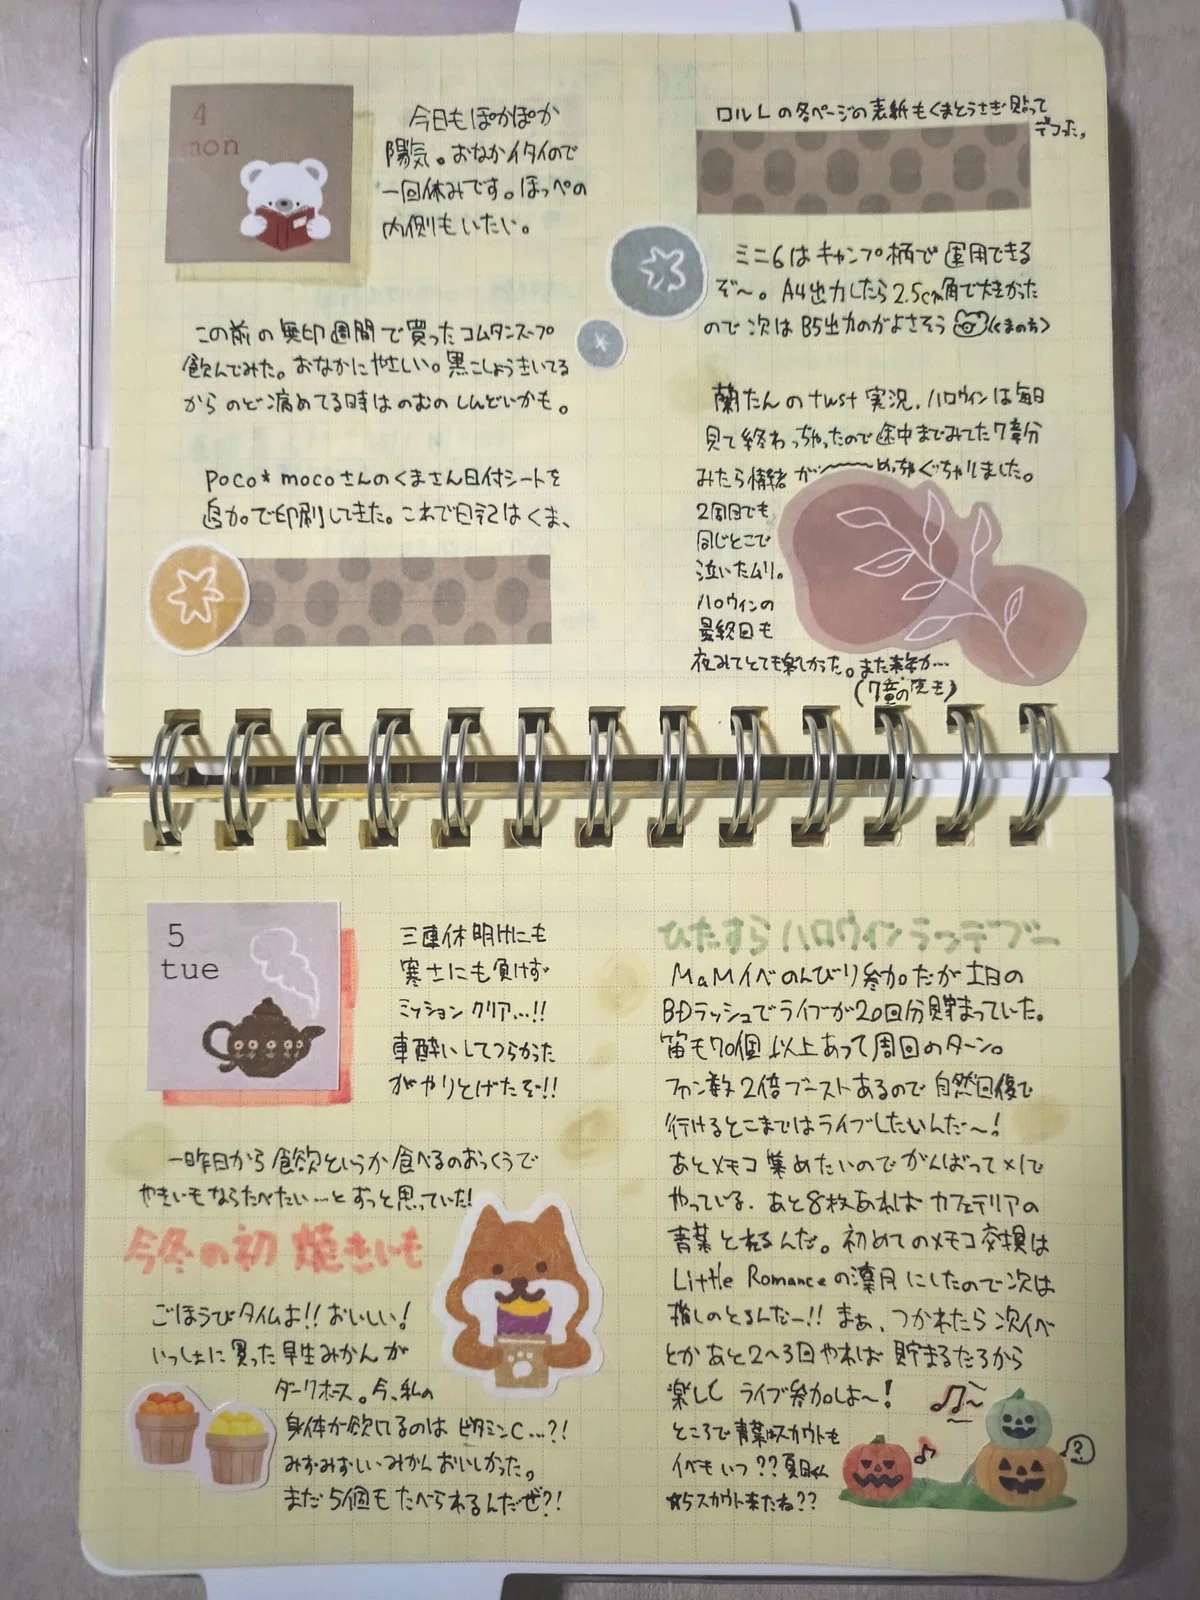 4
mon
今日もぽかぽか
陽気。おなかイタイので
一回休みです。ほっぺの
内側もいたい。
この前の無印週間で買ったコムタンスープ
飲んでみた。おなかにやさしい。黒こしょうきいてる
からのど痛めてる時はのむのしんどいかも。
poco*mocoさんのくまさん日付シートを
追加で印刷してきた。これで日記はくま、
ロルLの各ページの表紙もくまとうさぎ貼って
デコった。
ミニ6はキャンプ柄で運用できる
ぞ〜。A4出力したら2.5cm角で大きかった
ので次はB5出力のがよさそう(くまの方)
蘭たんのtwst実況、ハロウィンは毎日
見て終わっちゃったので途中までみてた7章分
みたら情緒が〜〜めっちゃぐちゃりました。
2周目でも
同じとこで
泣いたムリ。
ハロウィンの
最終回も
夜みてとても楽しかった。また来年か…
(7章の先も)
5
tue
三連休明けにも
寒さにも負けず
ミッションクリア…!!
車酔いしてつらかった
がやりとげたぞ!!
一昨日から食欲というか食べるのおっくうで
やきいもならたべたい…とずっと思っていた!
今冬の初焼きいも
ごほうびタイムよ!!おいしい!
いっしょに買った早生みかんが
ダークホース。今、私の
身体が欲してるのはビタミンC…?!
みずみずしいみかんおいしかった。
まだ5個もたべられるんだぜ?!
ひたすらハロウィンランデブー
MaMイベのんびり参加だが土日の
BDラッシュでライブが20回分貯まっていた。
笛も70個以上あって周回のターン。
ファン数2倍ブーストあるので自然回復で
行けるとこまではライブしたいんだ〜!
あとメモコ集めたいのでがんばって×1で
やっている。あと8枚あればカフェテリアの
青葉とれるんだ。初めてのメモコ交換は
Little Romanceの漣月にしたので次は
推しのとるんだー!!まぁ、つかれたら次イベ
とかあと2〜3回やれば貯まるだろうから
楽しくライブ参加しよ〜!
ところで青葉はスカウトも
イベもいつ??夏目くん
☆5スカウト来たね??
?